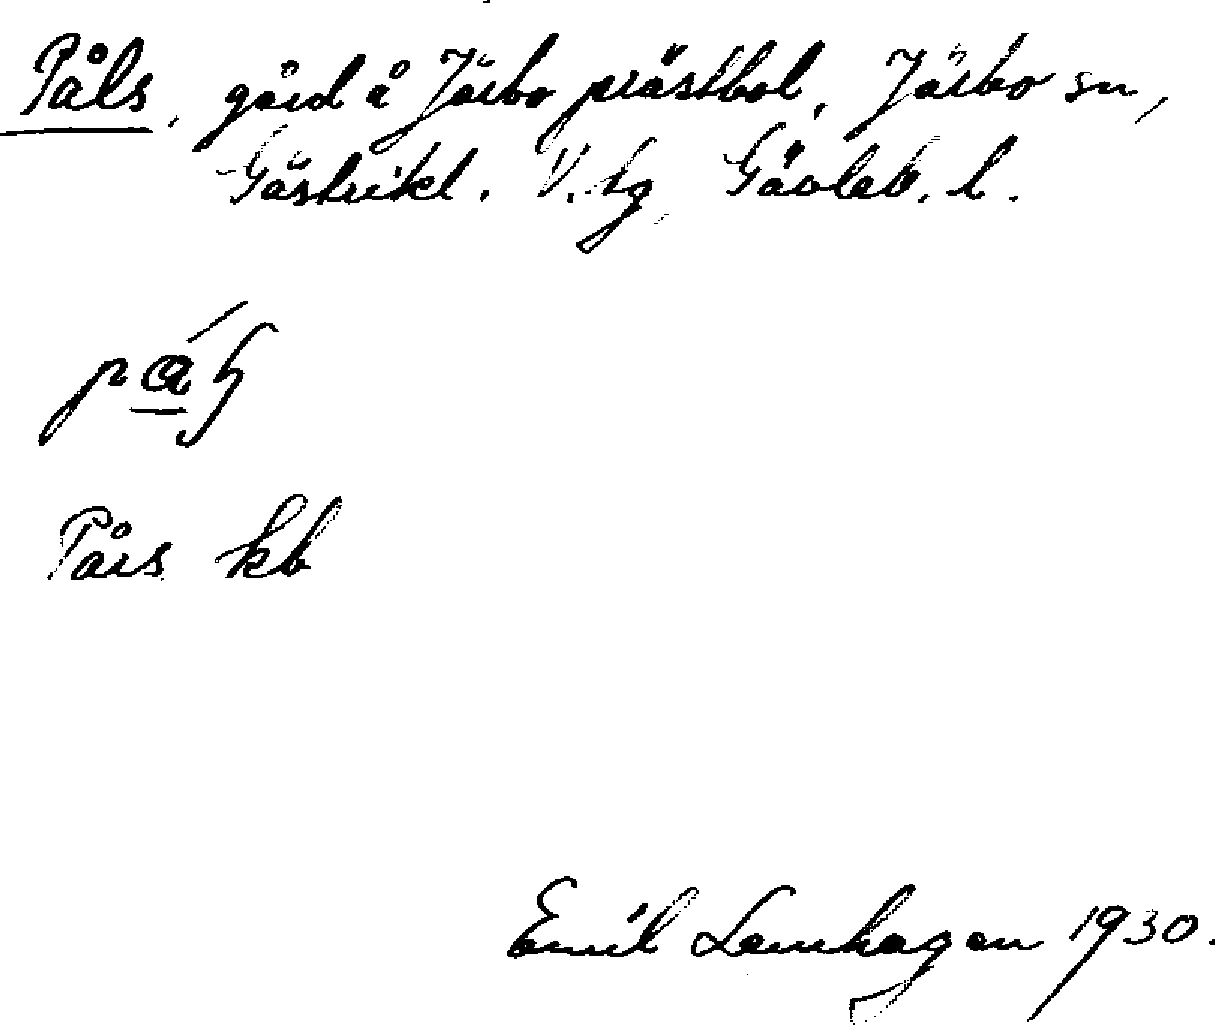 Påls, gård å Järbo prästbol, Järbo sn,
Gästrikl. V. tg, Gävleb. l.
Pårs kb
Emil Lemhagen 1930.